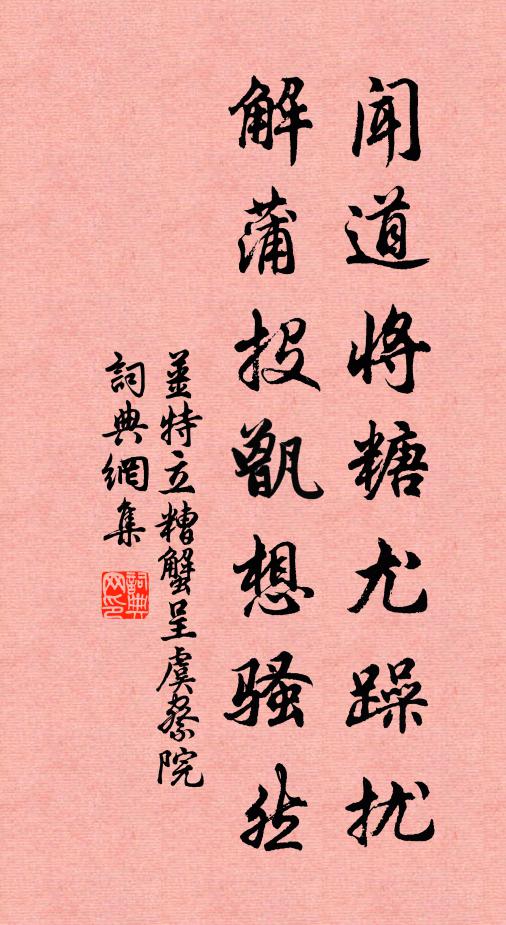 闻道将糖尤躁扰
解蒲投甑想骚然
姜特立糟蟹呈虞察院
詞典網集
詞典网印